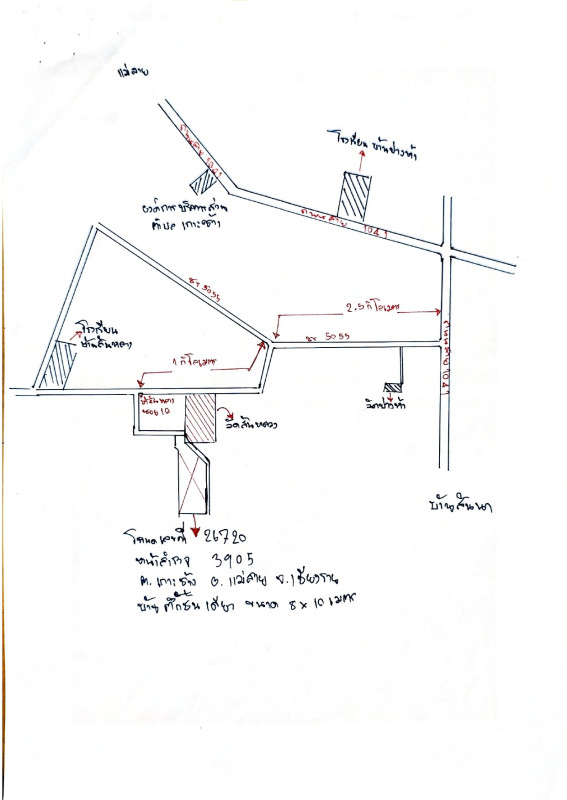 แม่สาย
ถนนสาย 1041
โรงเรียน บ้านป่างห้า
องค์การ บริหารส่วน
ตำบล เกาะช้าง
ถนนสาย 1041
ชร 5055
2.5 กิโลเมตร
ชร 5055
ถนนสาย 1041
โรงเรียน
บ้านสันหลวง
1 กิโลเมตร
ซอย 10
วัดสันหลวง
วัดป่างห้า
บ้านสันนา
โฉนด เลขที่ 26720
หน้าสำรวจ 3905
ต. เกาะช้าง อ. แม่สาย จ. เชียงราย
บ้าน ตึกชั้น เดียว ขนาด 8 x 10 เมตร